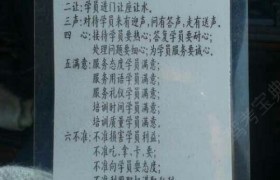 二让:学员进门让座让水。
三声:对待学员来有迎声,问有答声,走有送声。
四 心:接待学员要热心;答复学员要耐心;
处理问题要细心;为学员服务要诚心。
五满意:服务态度学员满意;
服务用语学员满意;
服务礼仪学员满意;
培训时间学员满意;
培训质量学员满意;
六不准:不准损害学员利益;
不准吃、拿、卡、要;
不准向学员要态度;